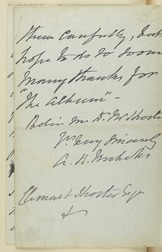 them carefully, & I
hope to do so soon
Many thanks for
"the Album" -
Believe me Dr. Mr. Shorter
Yrs. very sincerely
A. B. Nicholls
Clement Shorter Esqr